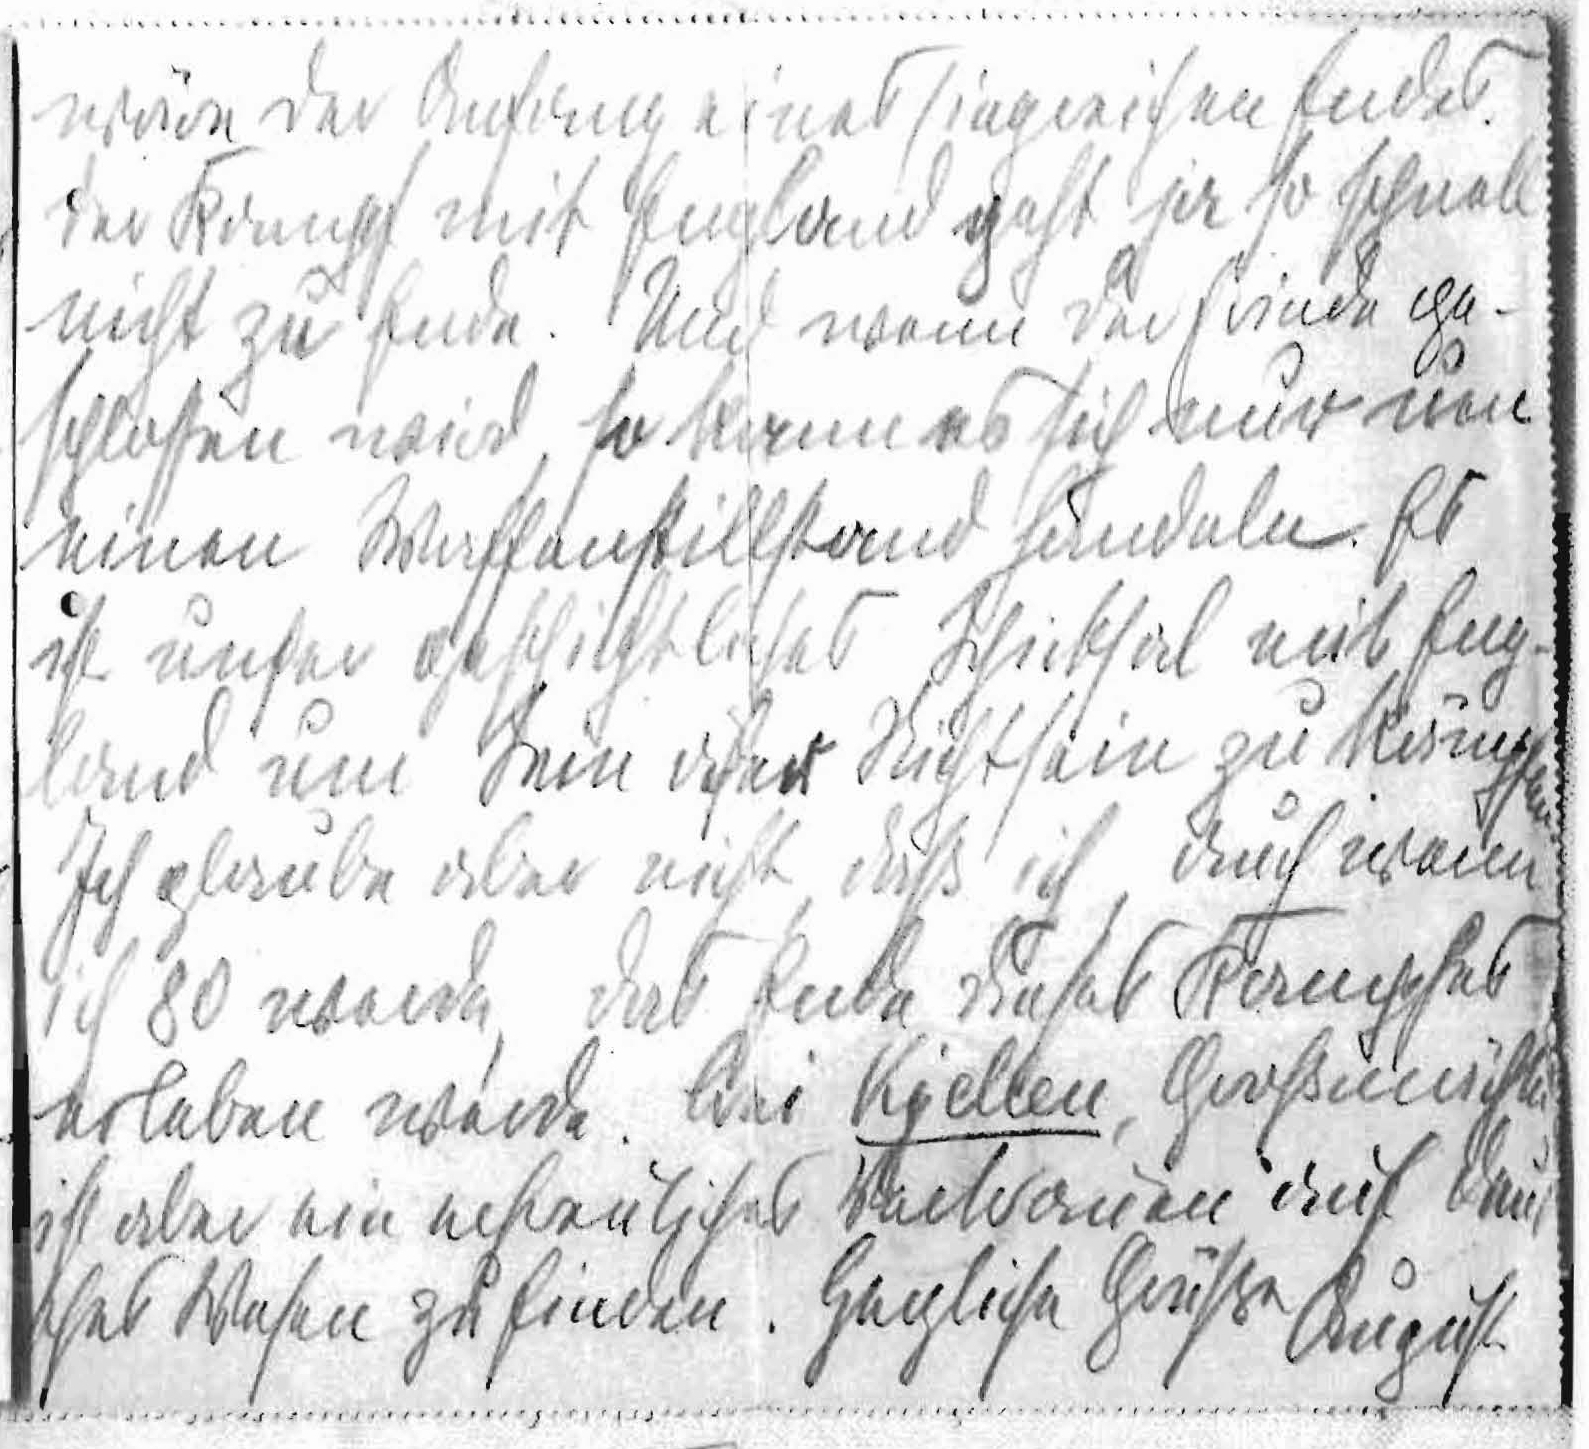 wäre der Anfang eines siegreichen Endes.
Der Kampf mit England geht ja so schnell
nicht zu Ende. Und wenn der Friede ge-
schlossen wird, so kann es sich nur um
einen Waffenstillstand handeln. Es
ist unser geschichtliches Schicksal mit Eng-
land um Sein oder Nichtsein zu kämpfen.
Ich glaube aber nicht, daß ich, auch wenn
ich 80 werde, das Ende dieses Kampfes
erleben werde. Bei Kjellen, Großmächte
ist aber ein erfreuliches Vertrauen auf deut
sches Wesen zu finden. Herzliche Grüße August